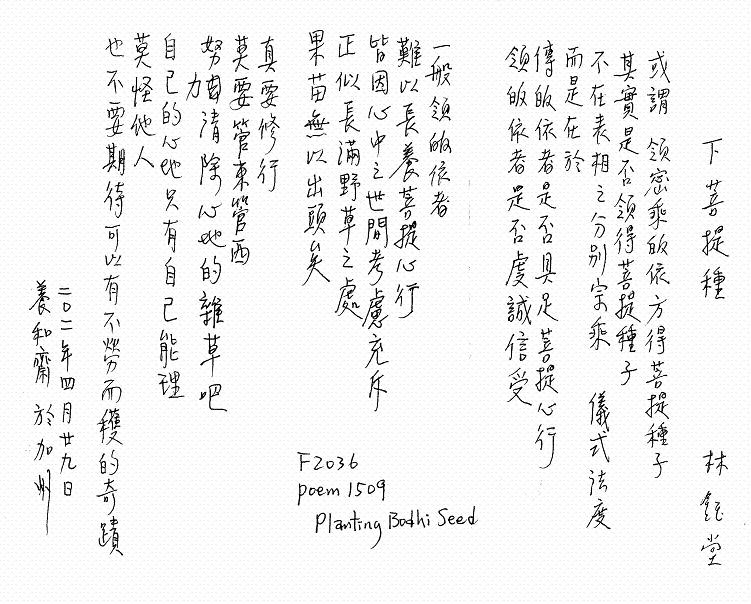 下菩提種 林鈺堂
或謂 領密乘皈依方得菩提種子
其實是否領得菩提種子
不在表相之分別宗乘 儀式法度
而是在於
傳皈依者是否具足菩提心行
領皈依者是否虔誠信受
一般領皈依者
難以長養菩提心行
皆因心中之世間考慮充斥
正似長滿野草之處
果苗無以出頭矣
真要修行
莫要管東管西
努力清除心地的雜草吧
自己的心地只有自己能理
莫怪他人
也不要期待可以有不勞而穫的奇蹟
二〇一一年四月廿九日
養和齋 於加州
F2036
poem 1509
Planting Bodhi Seed